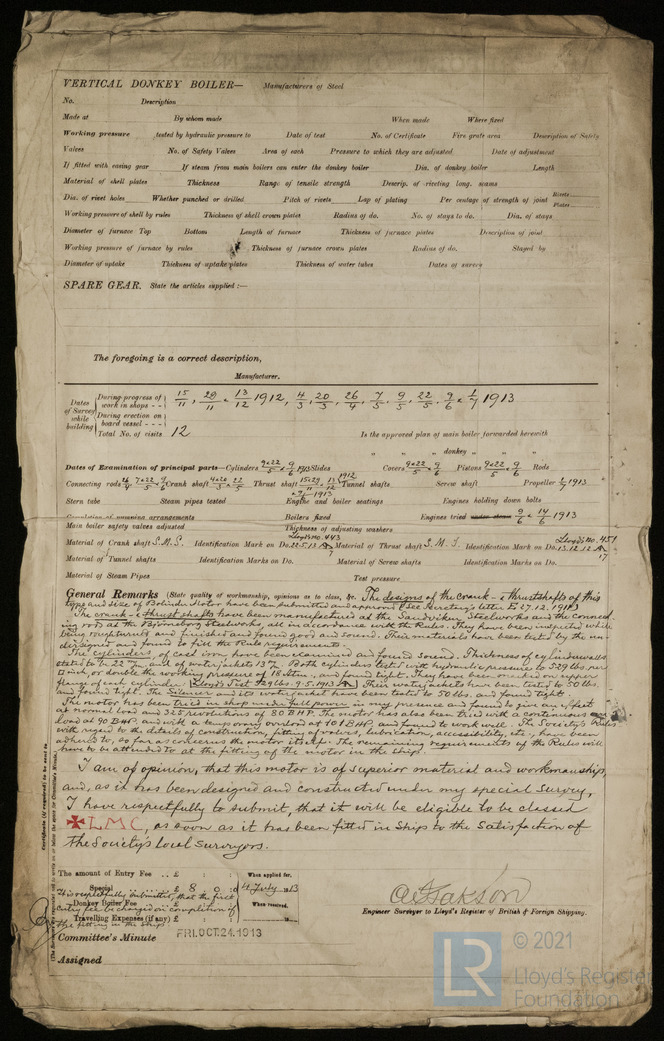 VERTICAL DONKEY BOILER— Manufacturers of Steel
No. Description
Made at By whom made When made Where fixed
Working pressure tested by hydraulic pressure to Date of test No. of Certificate Fire grate area Description of Safety
Valves No. of Safety Valves Area of each Pressure to which they are adjusted Date of adjustment
If fitted with easing gear If steam from main boilers can enter the donkey boiler Dia. of donkey boiler Length
Material of shell plates Thickness Range of tensile strength Descrip. of riveting long. seams
Dia. of rivet holes Whether punched or drilled Pitch of rivets Lap of plating Per centage of strength of joint Rivets Plates
Working pressure of shell by rules Thickness of shell crown plates Radius of do. No. of stays to do. Dia. of stays
Diameter of furnace Top Bottom Length of furnace Thickness of furnace plates Description of joint
Working pressure of furnace by rules Thickness of furnace crown plates Radius of do. Stayed by
Diameter of uptake Thickness of uptake plates Thickness of water tubes Dates of survey
SPARE GEAR. State the articles supplied :—
The foregoing is a correct description,
Manufacturer.
Dates of Survey while building
During progress of work in shops - - 15/11, 29/11 & 13/12 1912, 4/3, 20/3, 26/4, 7/5, 9/5, 22/5, 9/6 & 1/7 1913
During erection on board vessel - - -
Total No. of visits 12 Is the approved plan of main boiler forwarded herewith
" " " donkey " " "
Dates of Examination of principal parts—Cylinders 9 & 22/5 & 9/6 1913 Slides Covers 9 & 22/5 & 9/6 Pistons 9 & 22/5 & 9/6 Rods
Connecting rods Crank shaft Thrust shaft Tunnel shafts Screw shaft Propeller 1/7 1913
Stern tube Steam pipes tested Engine and boiler seatings Engines holding down bolts
Completion of pumping arrangements Boilers fixed Engines tried under steam 9/6 & 14/6 1913
Main boiler safety valves adjusted Thickness of adjusting washers
Material of Crank shaft S.M.S. Identification Mark on Do. Lloyd's No. 443 22.5.13 Material of Thrust shaft S.M.S. Identification Mark on Do. Lloyd's No. 451 13.12.12
Material of Tunnel shafts Identification Marks on Do. Material of Screw shafts Identification Marks on Do.
Material of Steam Pipes Test pressure
General Remarks (State quality of workmanship, opinions as to class, &c. The designs of the crank- & thrustshafts of this
type and size of Bolinder Motor have been submitted and approved (see Secretary's letter E 27.12.1911)
The crank- & thrust shafts have been manufactured at the Sandviken Steelworks and the connect-
ing rods at the Björneborg Steelworks, all in accordance with the Rules. They have been inspected while
being roughturned and finished and found good and sound. Their materials have been tested by the un-
dersigned and found to fill the Rule requirements.
The cylinders of cast iron have been examined and found sound. Thickness of cylinderwalls
stated to be 22 m/m and of waterjackets 13 m/m. Both cylinders tested with hydraulic pressure to 529 lbs. per
□ inch, or double the working pressure of 18 Atm., and found tight. They have been marked on upper
flange of each cylinder: Lloyd's Test 529 lbs. 9.5.1913. Their waterjackets have been tested to 50 lbs.
and found tight. The Silencer and its waterjacket have been tested to 50 lbs. and found tight.
The motor has been tried in shop under full power in my presence and found to give an effect
at normal load and 325 revolutions of 80 BHP. The motor has also been tried with a continuous
load at 90 BHP. and with a temporary overload at 101 BHP, and found to work well. The Society's Rules
with regard to the details of construction, fitting of valves, lubrication, accessibility, etc., have been
adhered to, so far as concerns the motor itself. The remaining requirements of the Rules will
have to be attended to at the fitting of the motor in the ship.
I am of opinion, that this motor is of superior material and workmanship,
and, as it has been designed and constructed under my special survey,
I have respectfully to submit, that it will be eligible to be classed
✠ LMC, as soon as it has been fitted in ship to the satisfaction of
the Society's local surveyors.
Certificate (if required) to be sent to
The amount of Entry Fee .. £ : : When applied for,
Special .. £ 8 : 0 : 0 4 July 1913
Donkey Boiler Fee .. £ : : When received,
Travelling Expenses (if any) £ : :
It is respectfully submitted, that the first
entry fee be charged on completion of
the fitting in the ship
Engineer Surveyor to Lloyd's Register of British & Foreign Shipping.
Committee's Minute FRI. OCT. 24. 1913
Assigned
LR
© 2021
Lloyd's Register
Foundation